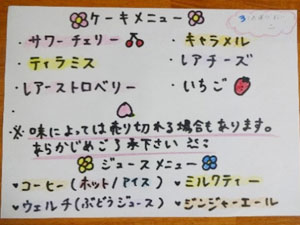 ケーキメニュー
・サワーチェリー ・キャラメル
・ティラミス ・レアチーズ
・レアーストロベリー ・いちご
・
※味によっては売り切れる場合もあります。
あらかじめご了承下さい
ジュースメニュー
♥コーヒー(ホット/アイス) ♥ミルクティー
♥ウェルチ(ぶどうジュース) ♥ジンジャーエール